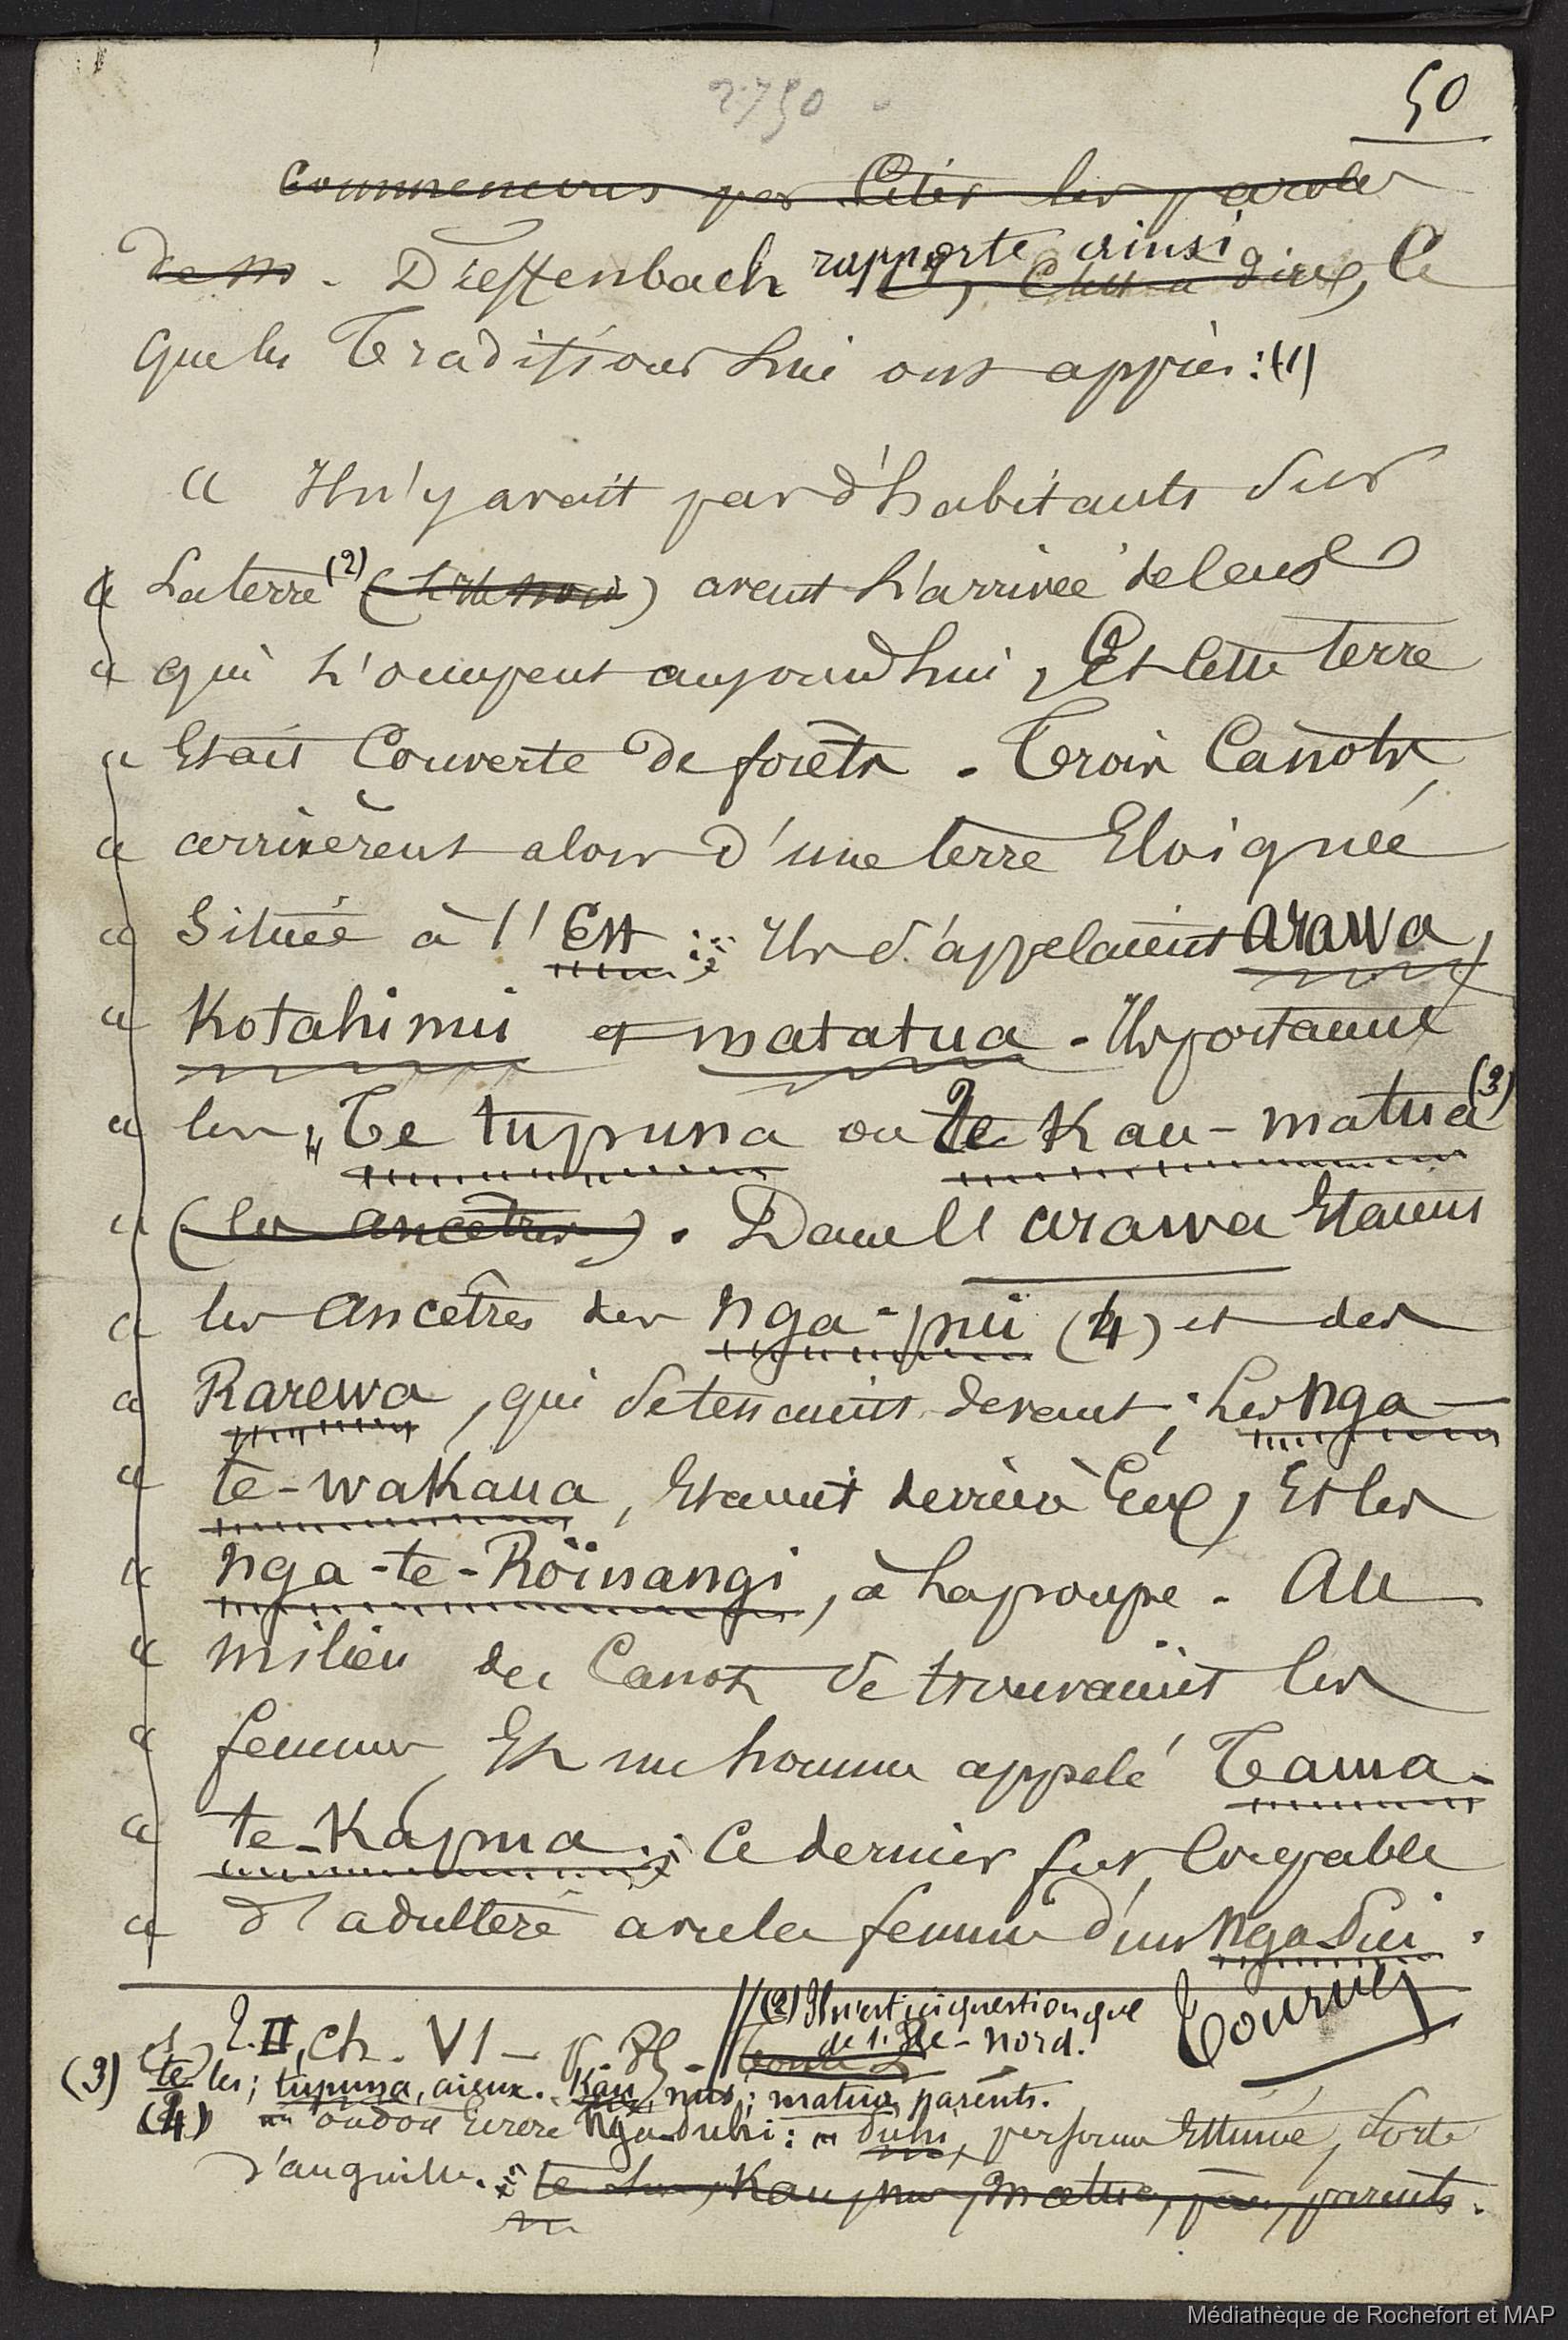 2750
50
Commencerons par Citer les paroles
de M. Dieffenbach rapporte ainsi, C'est à dire, Ce
que les Traditions lui ont appris : (1)
" Il n'y avait pas d'habitants sur
" La terre (2) () avant l'arrivée de Ceux
" qui l'occupent aujourd'hui, Et Cette terre
" Etait Couverte de forêts. Trois Canots,
" arrivèrent alors d'une terre Eloignée
" Située à l'Est : Ils s'appelaient arawa,
" Kotahinui et matatua. Ils portaient
" les " Te tupuna ou Te Kau-matua (3)
" (les ancêtres). Dans l'arawa Etaient
" les ancêtres des nga-pui (4) et des
" Rarewa, qui se tenaient devant ; Les nga-
" te-wakaua, Etaient derrière Eux, Et les
" nga-te-Roïnangi, à la poupe. Au
" milieu du Canot se trouvaient les
" femmes Et un homme appelé Tama-
" te-Kapua : Ce dernier fut Coupable
" d'adultère avec la femme d'un nga Sui.
(1) T. II, Ch. VI - p. -
// (2) Il n'est ici question que
de l'Ile-nord.
Tournez
(3) te les ; tupuna, aieux. Kau, nus ; matua, parents.
(4) ou doit Ecrire Nga-duhi : duhi, personne Estimée, sorte
d'anguille. : te les, Kau, nus, matua, parents.
Médiathèque de Rochefort et MAP